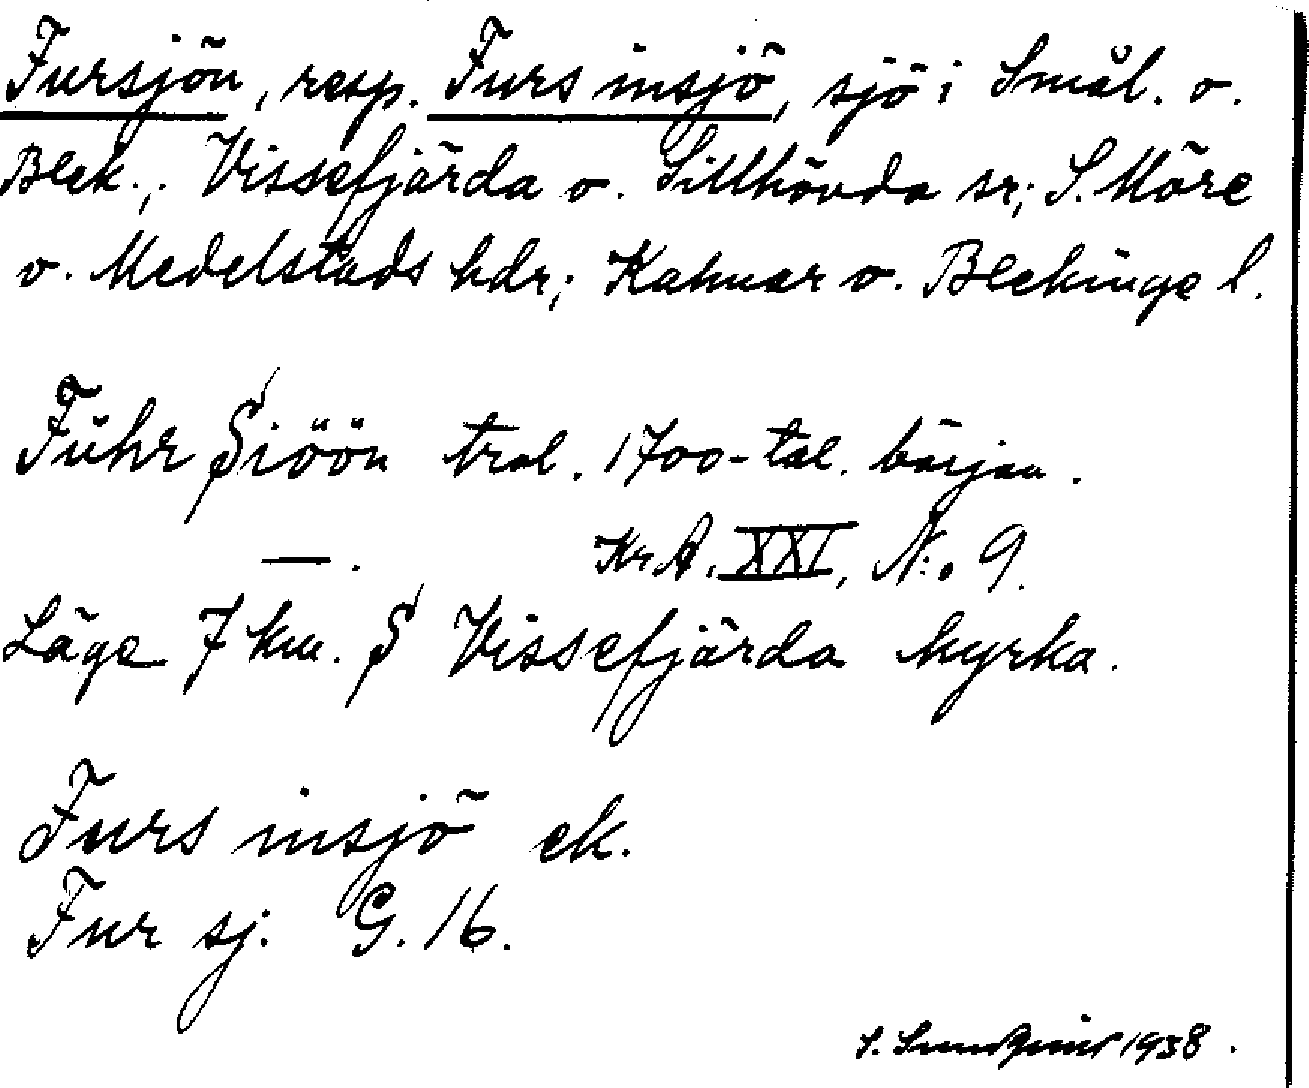 Fursjön, resp. Furs insjö, sjö i Smål. o.
Blek.; Vissefjärda o. Sillhövda sr; S. Möre
o. Medelstads hdr; Kalmar o. Blekinge l.
Führ Siöön trol. 1700-tal. början.
—. Kr A. XXI, N:o 9.
Läge 7 km. S Vissefjärda kyrka.
Furs insjö ek.
Fur sj. G. 16.
S. 1938.